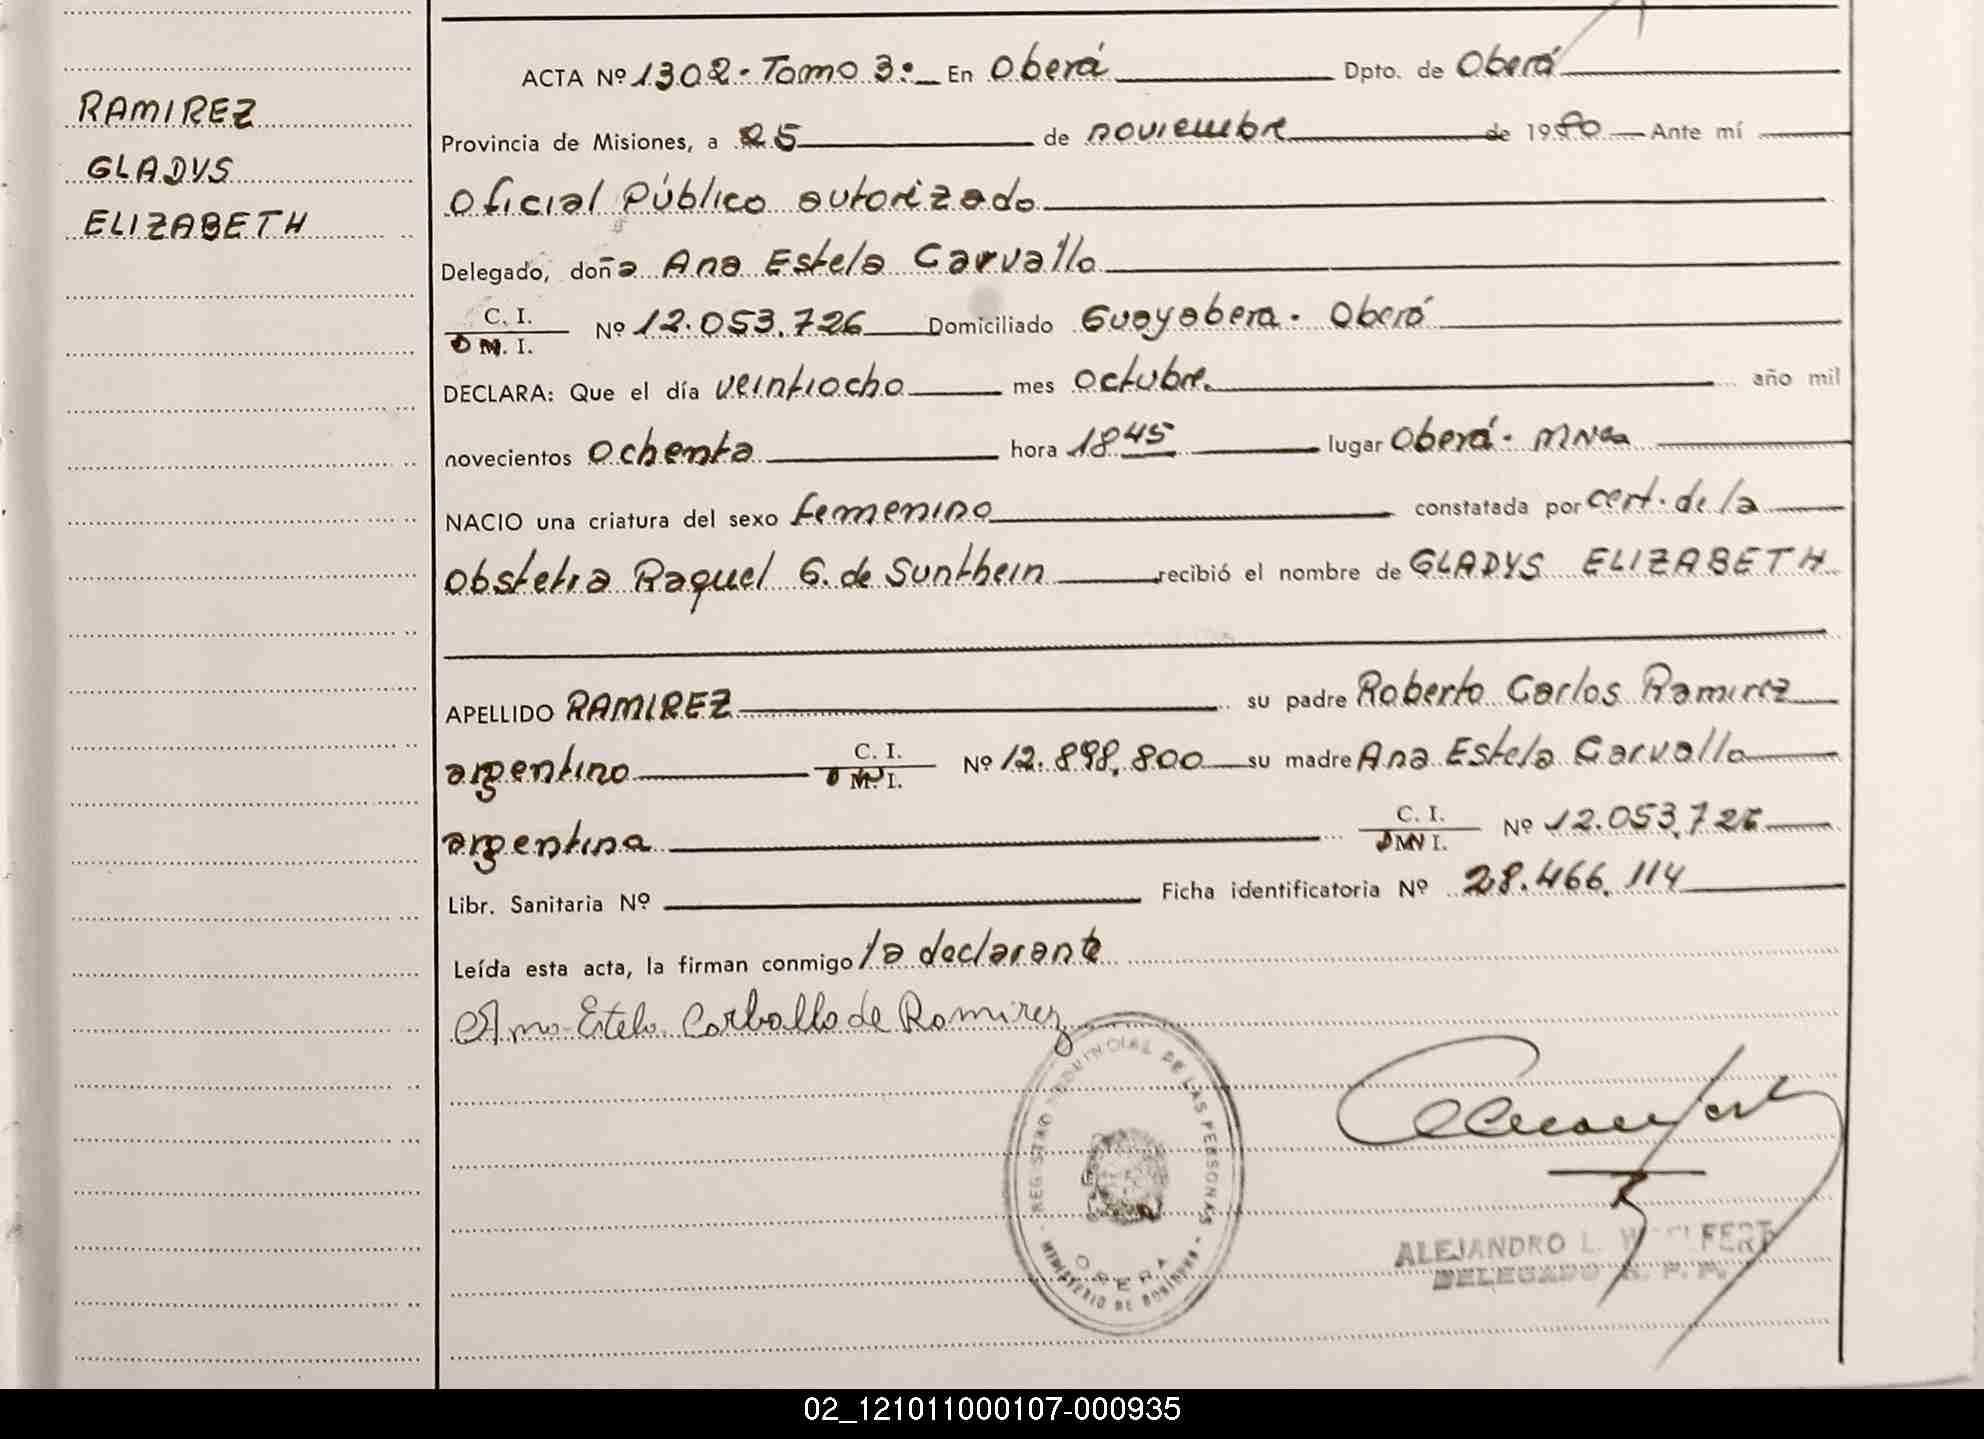 RAMIREZ
GLADYS
ELIZABETH
ACTA Nº 1302 - Tomo 3º En Oberá Dpto. de Oberá
Provincia de Misiones, a 25 de noviembre de 1980 Ante mí
Oficial Público autorizado
Delegado, doña Ana Estela Carvallo
C. I.
Nº 12.053.726 Domiciliado Guayabera - Oberá
D M. I.
DECLARA: Que el día veintiocho mes octubre año mil
novecientos ochenta hora 18 45 lugar Oberá - Mnes
NACIO una criatura del sexo femenino constatada por cert. de la
obstetra Raquel G. de Sunthein recibió el nombre de GLADYS ELIZABETH
APELLIDO RAMIREZ su padre Roberto Carlos Ramirez
argentino C. I. Nº 12.898.800 su madre Ana Estela Carvallo
D M. I.
argentina C. I. Nº 12.053.726
D M I.
Libr. Sanitaria Nº Ficha identificatoria Nº 28.466.114
Leída esta acta, la firman conmigo la declarante
Ana Estela Carballo de Ramirez
REGISTRO PROVINCIAL DE LAS PERSONAS
MINISTERIO DE GOBIERNO
OBERA
ALEJANDRO L. W LFERT
DELEGADO R. P. P.
02_121011000107-000935